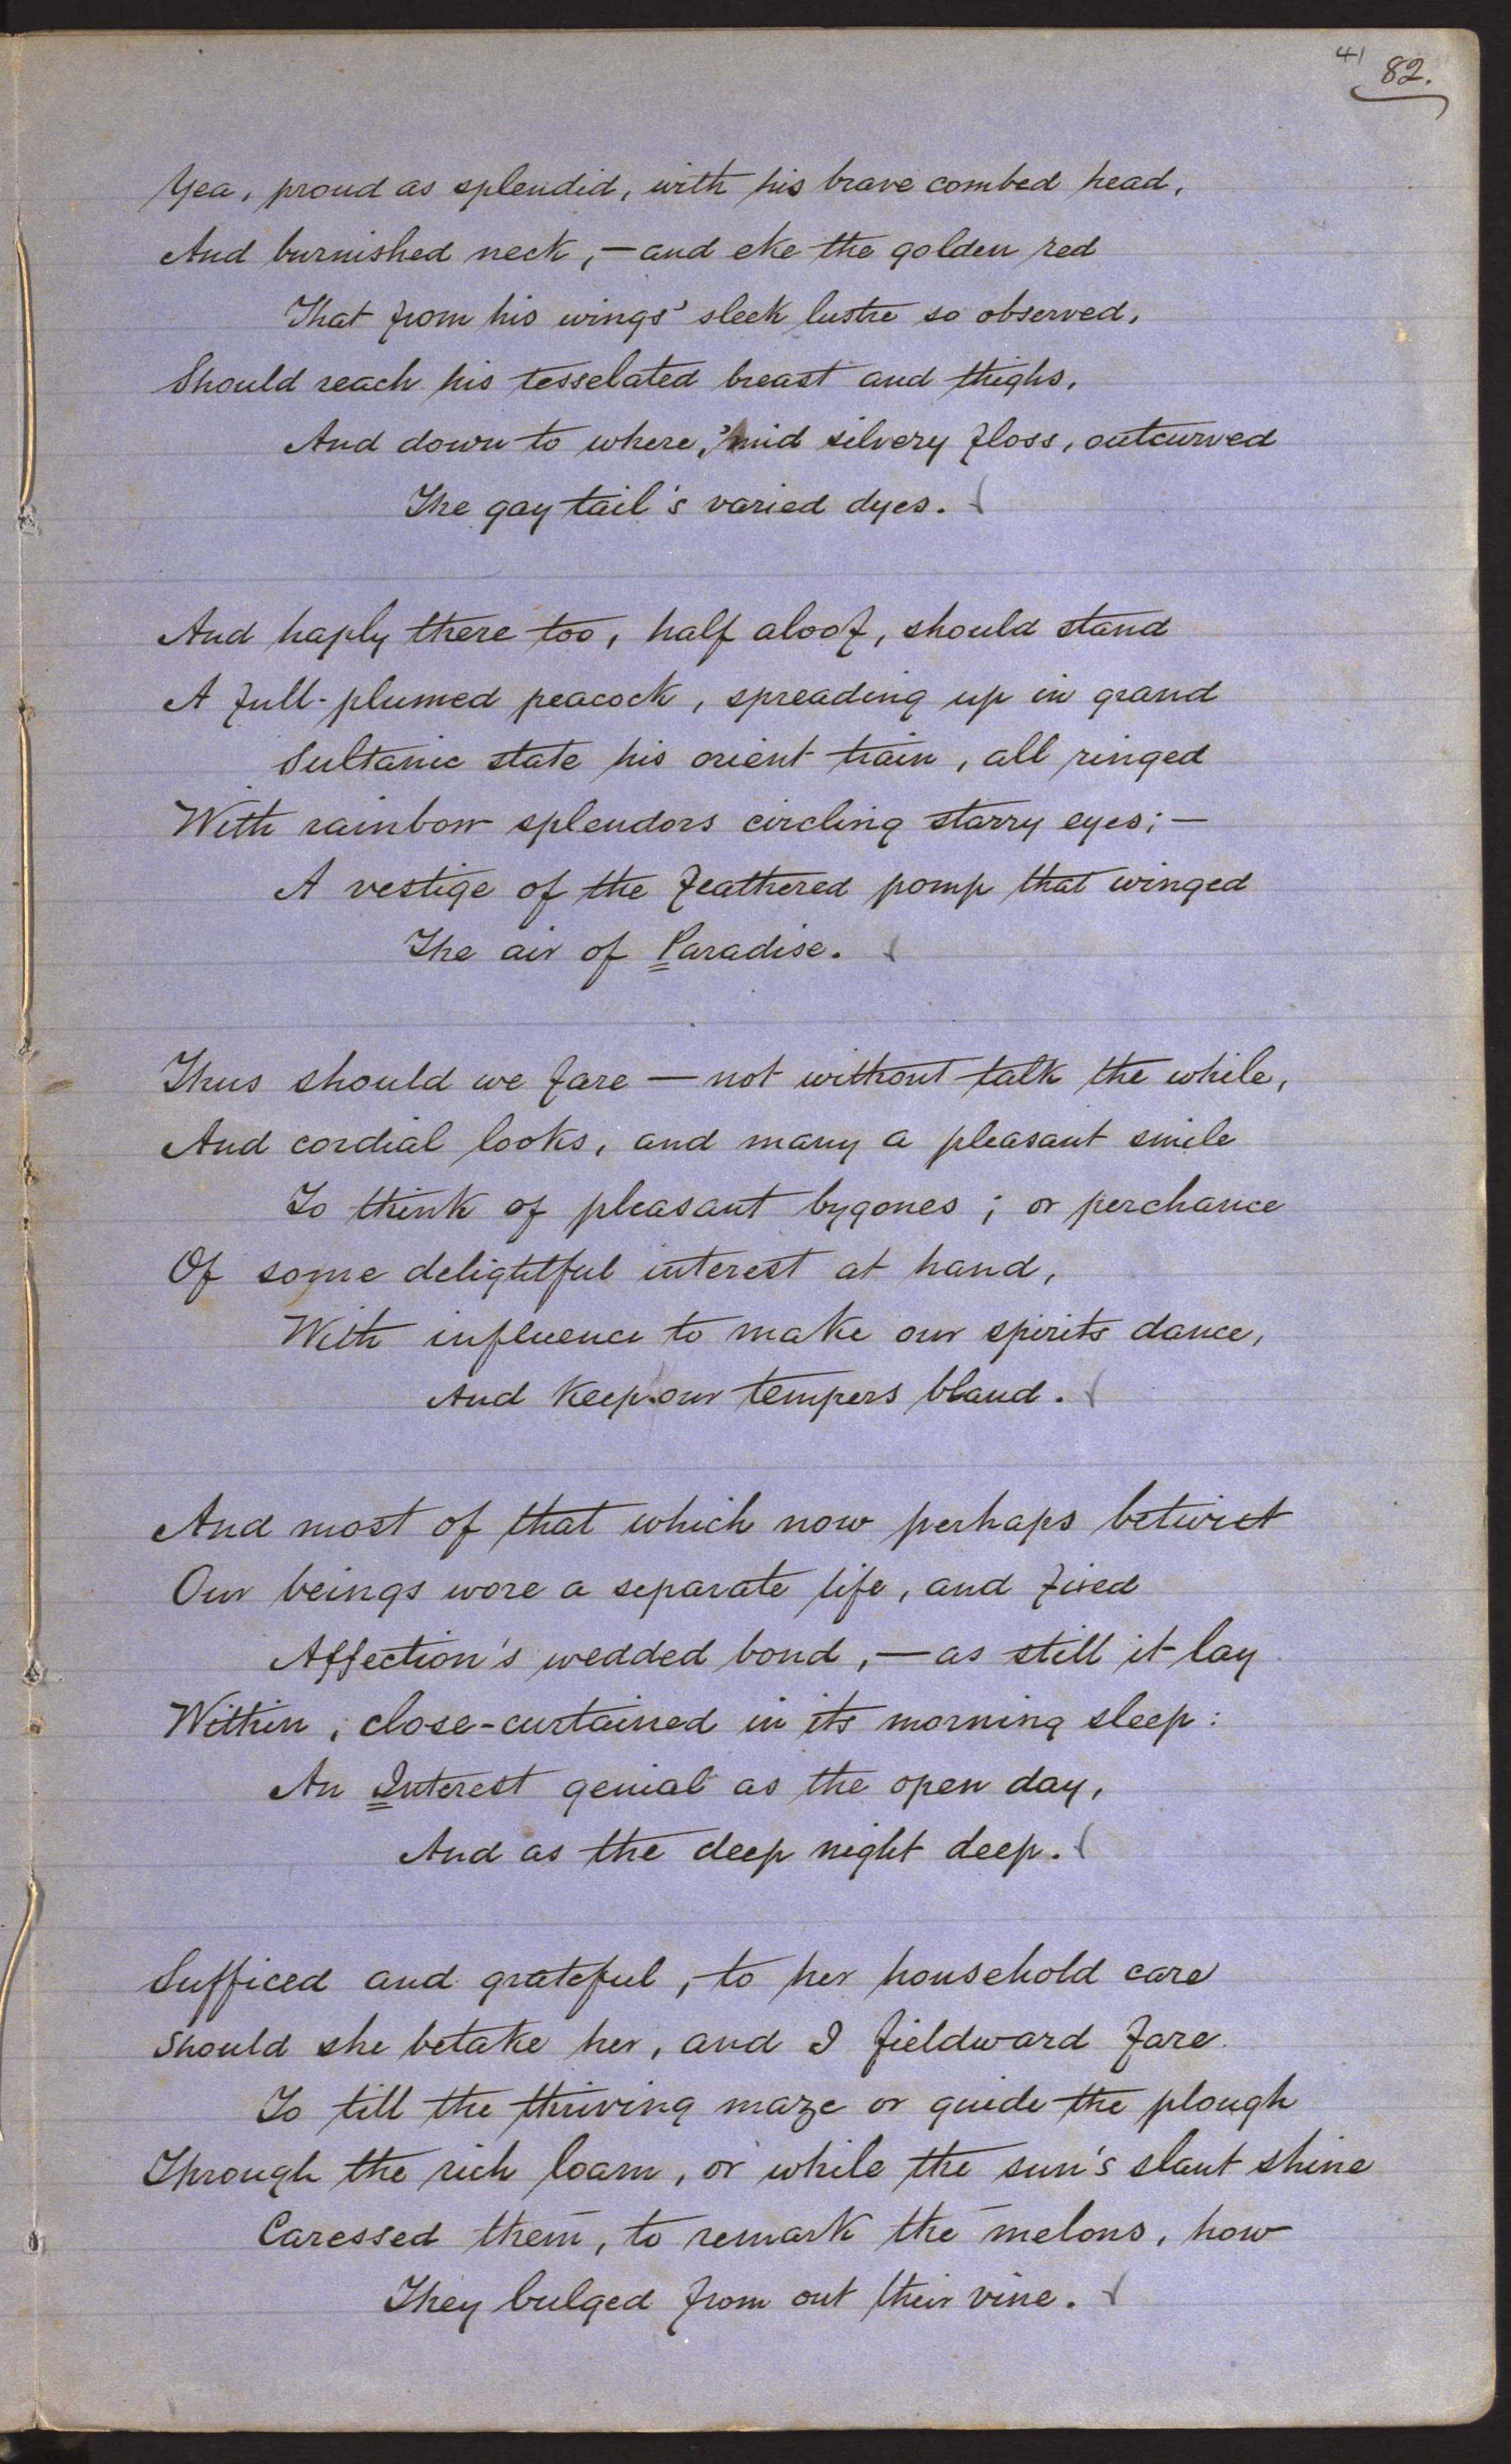 41
82.
Yea, proud as splendid, with his brave combed head,
And burnished neck,—and eke the golden red
That from his wings' sleek lustre so observed,
Should reach his tesselated breast and thighs,
And down to where, 'mid silvery floss, outcurved
The gay tail's varied dyes.
And haply there too, half aloof, should stand
A full-plumed peacock, spreading up in grand
Sultanic state his orient train, all ringed
With rainbow splendors circling starry eyes;—
A vestige of the feathered pomp that winged
The air of Paradise.
Thus should we fare — not without talk the while,
And cordial looks, and many a pleasant smile
To think of pleasant bygones; or perchance
Of some delightful interest at hand,
With influence to make our spirits dance,
And keep our tempers bland.
And most of that which now perhaps betwixt
Our beings wore a separate life, and fixed
Affection's wedded bond,—as still it lay
Within, close-curtained in its morning sleep:
An Interest genial as the open day,
And as the deep night deep.
Sufficed and grateful, to her household care
Should she betake her, and I fieldward fare
To till the thriving maze or guide the plough
Through the rich loam, or while the sun's slant shine
Caressed them, to remark the melons, how
They bulged from out their vine.